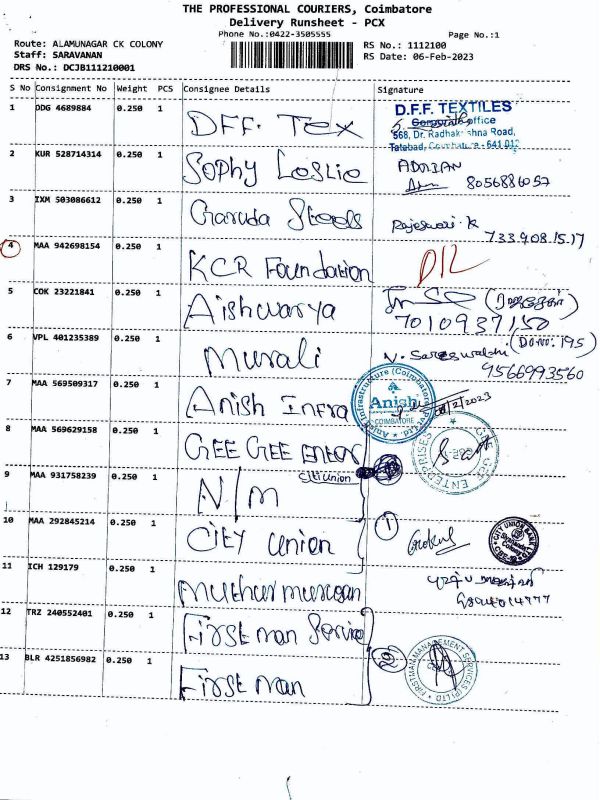 THE PROFESSIONAL COURIERS, Coimbatore
Delivery Runsheet - PCX
Phone No.:0422-3505555 Page No.:1
Route: ALAMUNAGAR CK COLONY RS No.: 1112100
Staff: SARAVANAN RS Date: 06-Feb-2023
DRS No.: DCJB111210001
S No Consignment No Weight PCS Consignee Details Signature
1 DDG 4689884 0.250 1 DFF. Tex D.F.F. TEXTILES
Corporate Office
568, Dr. Radhakrishna Road,
Tatabad, Coimbatore - 641 012
2 KUR 528714314 0.250 1 Sophy Leslie
8056886057
3 IXM 503086612 0.250 1 Garuda Steels Rajeswari. K
733.908.15.17
4 MAA 942698154 0.250 1 KCR Foundation D/L
5 COK 23221841 0.250 1 Aishwarya
7010937150
6 VPL 401235389 0.250 1 Murali (Do no: 195)
9566993560
7 MAA 569509317 0.250 1 Anish Infra Anish Infrastructure (Coimbatore)
Anish
COIMBATORE
8/2/2023
8 MAA 569629158 0.250 1 GEE GEE Enter GEE GEE ENTERPRISES
9 MAA 931758239 0.250 1 N/M
Citi Union
10 MAA 292845214 0.250 1 City Union 1 Gokul CITY UNION BANK
11 ICH 129179 0.250 1 Muthur murugan
12 TRZ 240552401 0.250 1 First man Service
13 BLR 4251856982 0.250 1 First man FIRSTMAN MANAGEMENT SERVICES (P) LTD